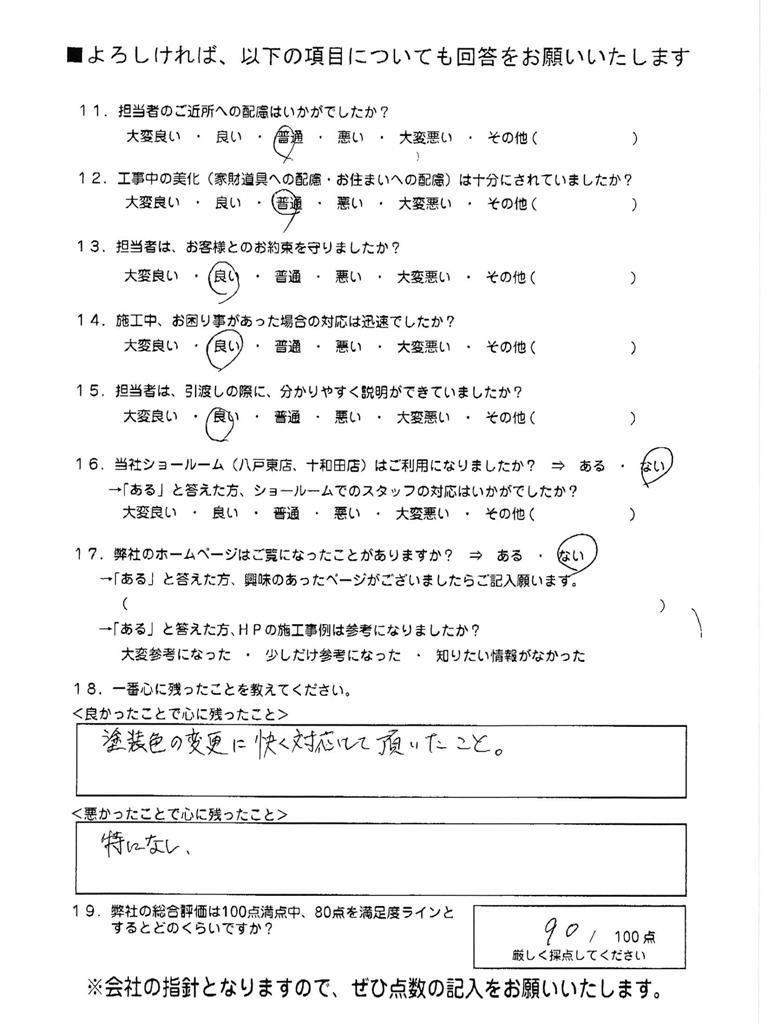 ■よろしければ、以下の項目についても回答をお願いいたします
11．担当者のご近所への配慮はいかがでしたか？
大変良い ・ 良い ・ 普通 ・ 悪い ・ 大変悪い ・ その他（　　　　　　　）
12．工事中の美化（家財道具への配慮・お住まいへの配慮）は十分にされていましたか？
大変良い ・ 良い ・ 普通 ・ 悪い ・ 大変悪い ・ その他（　　　　　　　）
13．担当者は、お客様とのお約束を守りましたか？
大変良い ・ 良い ・ 普通 ・ 悪い ・ 大変悪い ・ その他（　　　　　　　）
14．施工中、お困り事があった場合の対応は迅速でしたか？
大変良い ・ 良い ・ 普通 ・ 悪い ・ 大変悪い ・ その他（　　　　　　　）
15．担当者は、引渡しの際に、分かりやすく説明ができていましたか？
大変良い ・ 良い ・ 普通 ・ 悪い ・ 大変悪い ・ その他（　　　　　　　）
16．当社ショールーム（八戸東店、十和田店）はご利用になりましたか？ ⇒ ある ・ ない
→「ある」と答えた方、ショールームでのスタッフの対応はいかがでしたか？
大変良い ・ 良い ・ 普通 ・ 悪い ・ 大変悪い ・ その他（　　　　　　　）
17．弊社のホームページはご覧になったことがありますか？ ⇒ ある ・ ない
→「ある」と答えた方、興味のあったページがございましたらご記入願います。
（　　　　　　　　　　　　　　　　　　　　　　　　　　　　　　）
→「ある」と答えた方、ＨＰの施工事例は参考になりましたか？
大変参考になった ・ 少しだけ参考になった ・ 知りたい情報がなかった
18．一番心に残ったことを教えてください。
＜良かったことで心に残ったこと＞
塗装色の変更に快く対応して頂いたこと。
＜悪かったことで心に残ったこと＞
特になし、
19．弊社の総合評価は100点満点中、80点を満足度ラインと
するとどのくらいですか？
90 / 100点
厳しく採点してください
※会社の指針となりますので、ぜひ点数の記入をお願いいたします。